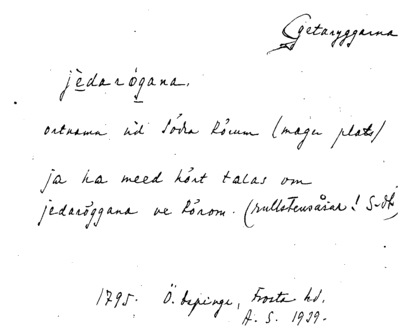 getaryggarna
jèdarógana.
ortnamn vid Södra Rörum (mager plats)
ja ha meed hört talas om
jedaröggana ve Rörom. (rullstensåsar! S-åt)
1795. Ö. Espinge, Frosta hd.
A. S. 1939.